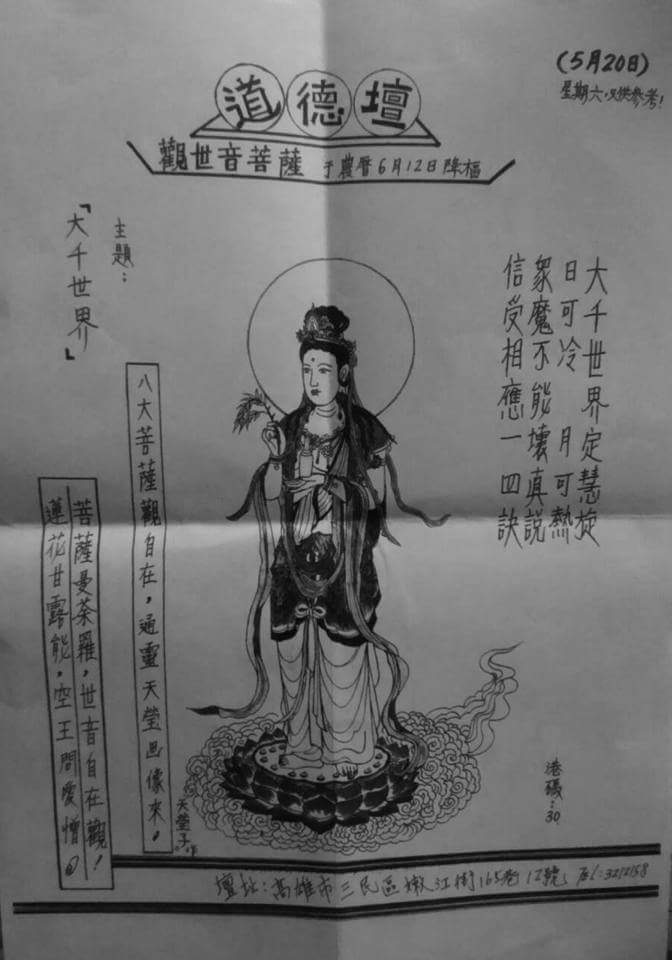 (5月20日)
星期六,只供參考!
道德壇
觀世音菩薩 于農曆6月12日降樞
主題：
「大千世界」
大千世界定慧旋
日可冷 月可熱
眾魔不能壞真說
信受相應一四訣
八大菩薩觀自在，通靈天瑩畫像來。
菩薩曼荼羅，世音自在觀！
蓮花甘露能，空王問愛憎
天瑩子作
港號：30
壇址：高雄市三民區嫩江街165巷12號